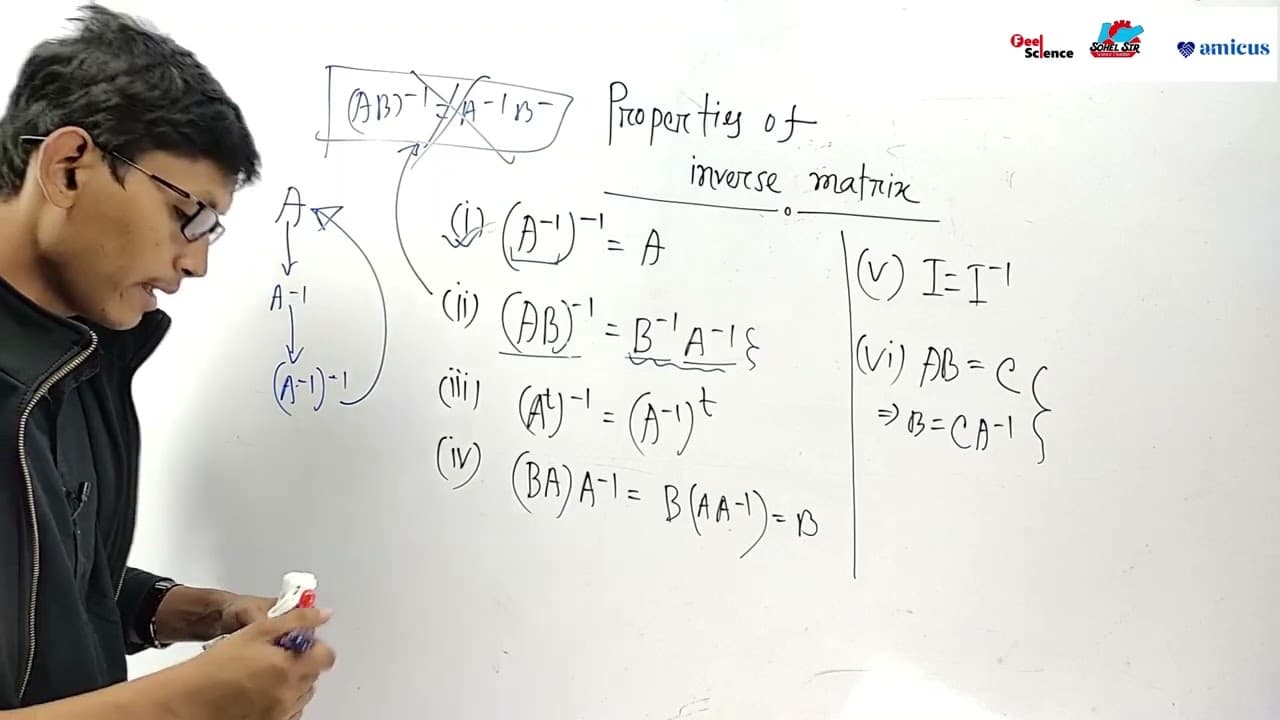 Feel Science
SOHEL SIR
amicus
(AB)⁻¹ = A⁻¹ B⁻
Properties of
inverse matrix
A
A⁻¹
(A⁻¹)⁻¹
(i) (A⁻¹)⁻¹ = A
(ii) (AB)⁻¹ = B⁻¹ A⁻¹ }
(iii) (Aᵗ)⁻¹ = (A⁻¹)ᵗ
(iv) (BA) A⁻¹ = B(AA⁻¹) = B
(v) I = I⁻¹
(vi) AB = C
⇒ B = CA⁻¹ }